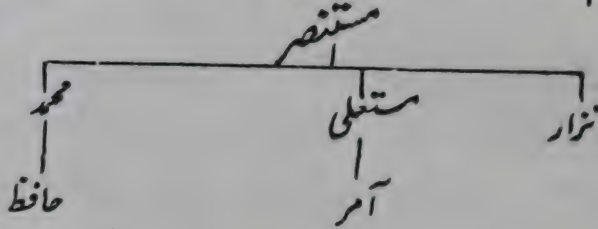 مستنصر
نزار مستعلی محمد
آمر حافظ